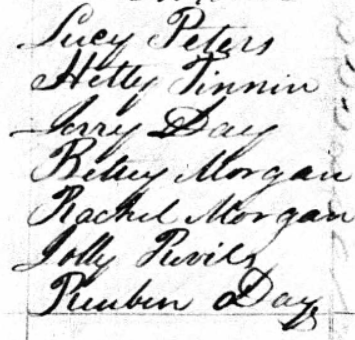 Lucy Peters
Hetty Tinnin
Jerry Day
Betsey Morgan
Rachel Morgan
Jolly Revils
Reuben Day